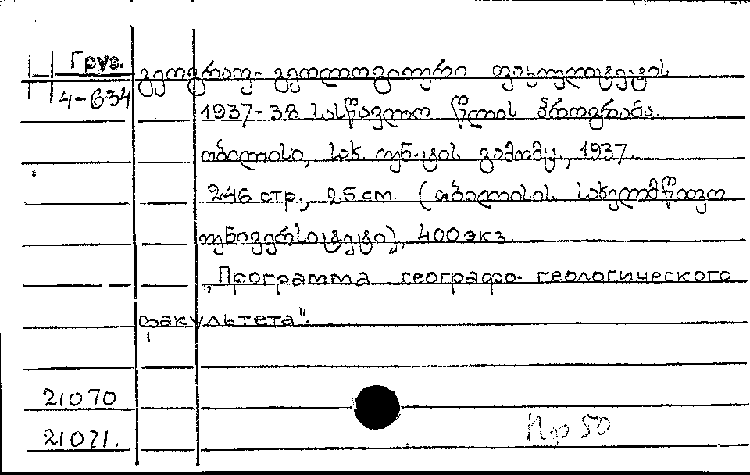 Груз. გეოგრაფ-გეოლოგიური ფაკულტეტის
4-634
1937-38 სასწავლო წლის პროგრამა.
თბილისი, სახ. უნ-ტის გამომც., 1937.
246 стр., 25 cm. (თბილისის სახელმწიფო
უნივერსიტეტი), 400 экз
„Программа географо-геологического
факультета".
21070
21071.
Пр 50